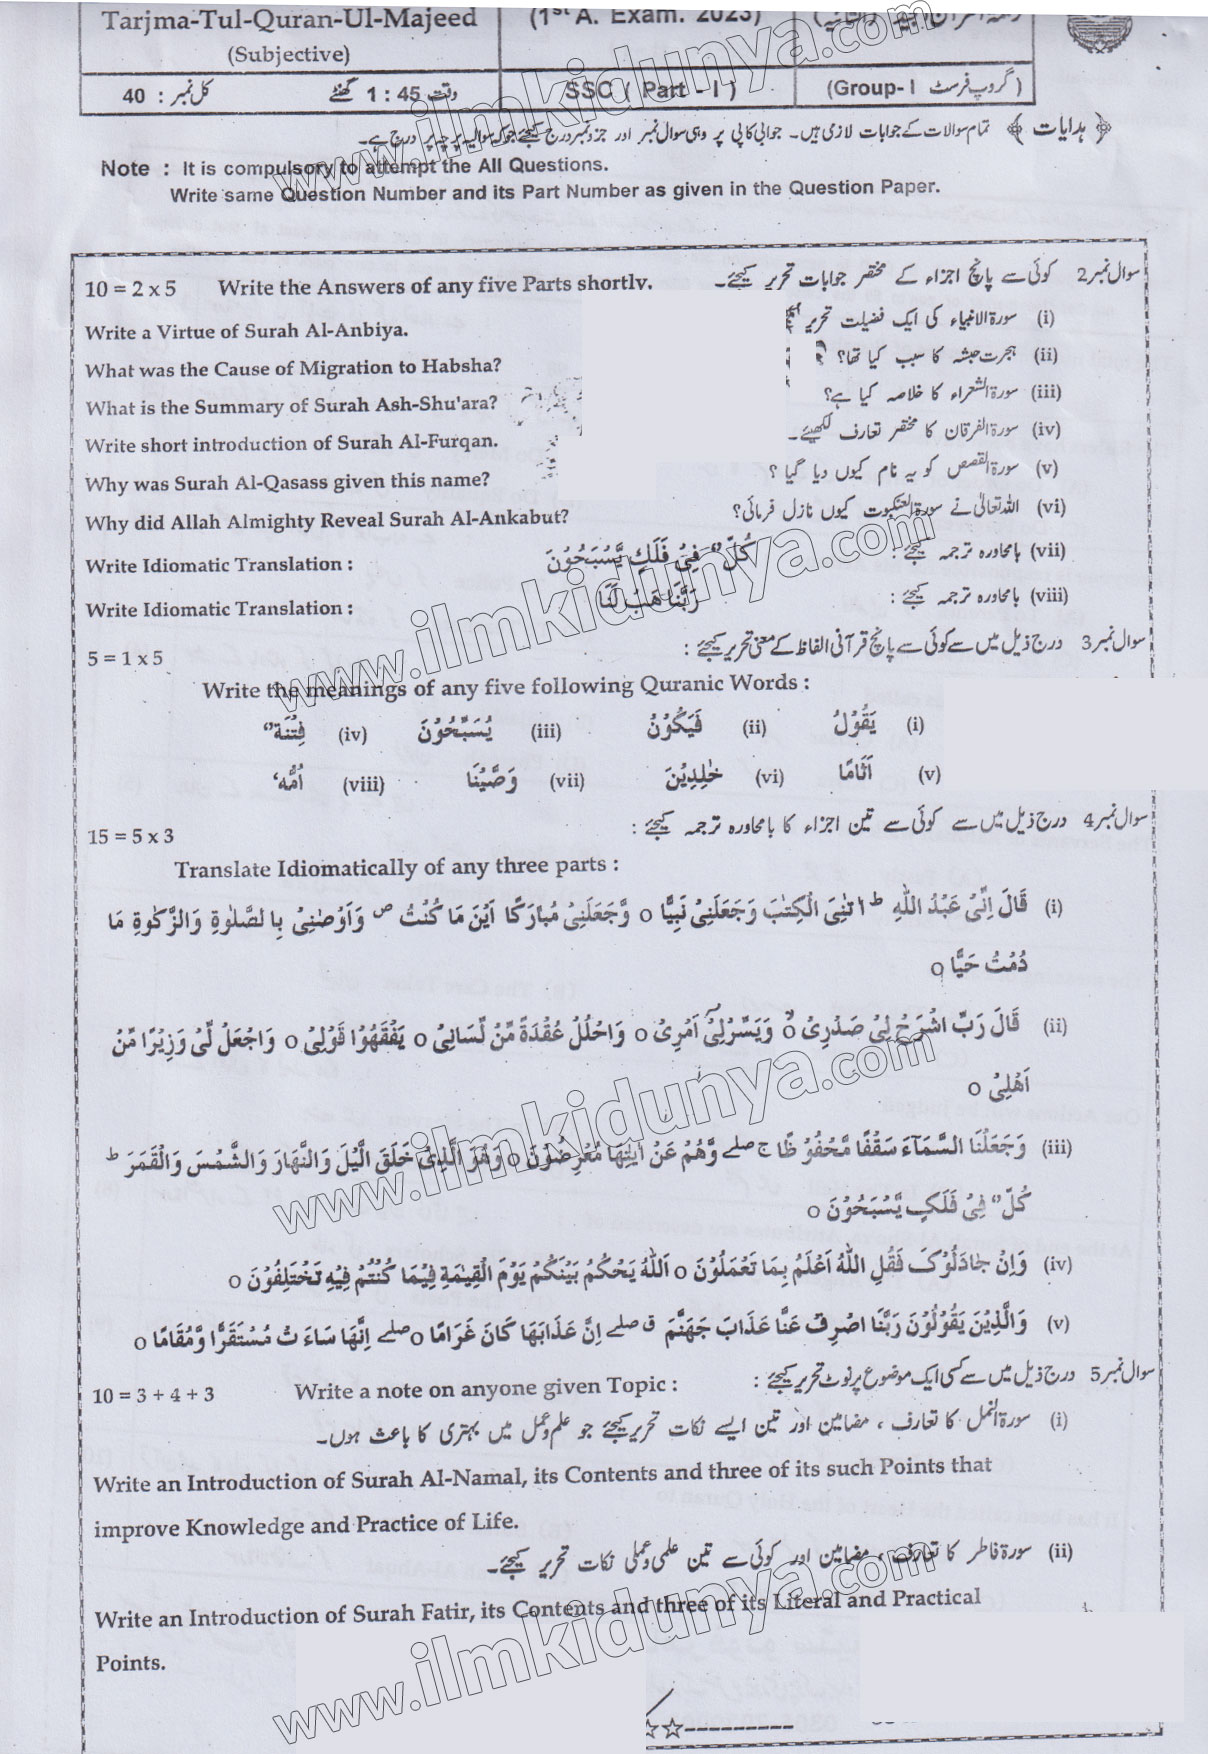 Tarjma-Tul-Quran-Ul-Majeed
(1st A. Exam. 2023)
(Subjective)
کل نمبر : 40 وقت 1 : 45 گھنٹے
SSC ( Part - I )
(Group- I گروپ فرسٹ )
﴿ ہدایات ﴾ تمام سوالات کے جوابات لازمی ہیں۔ جوابی کاپی پر وہی سوال نمبر اور جزو نمبر درج کیجئے جو کہ سوالیہ پرچہ پر درج ہے۔
Note : It is compulsory to attempt the All Questions.
Write same Question Number and its Part Number as given in the Question Paper.
سوال نمبر 2 کوئی سے پانچ اجزاء کے مختصر جوابات تحریر کیجئے۔
10 = 2 x 5 Write the Answers of any five Parts shortly.
(i) سورۃ الانبیاء کی ایک فضیلت تحریر
Write a Virtue of Surah Al-Anbiya.
(ii) ہجرت حبشہ کا سبب کیا تھا؟
What was the Cause of Migration to Habsha?
(iii) سورۃ الشعراء کا خلاصہ کیا ہے؟
What is the Summary of Surah Ash-Shu'ara?
(iv) سورۃ الفرقان کا مختصر تعارف لکھیئے۔
Write short introduction of Surah Al-Furqan.
(v) سورۃ القصص کو یہ نام کیوں دیا گیا ؟
Why was Surah Al-Qasass given this name?
(vi) اللہ تعالیٰ نے سورۃ العنکبوت کیوں نازل فرمائی؟
Why did Allah Almighty Reveal Surah Al-Ankabut?
(vii) بامحاورہ ترجمہ کیجئے : كُلٌّ فِىْ فَلَكٍ يَّسْبَحُوْنَ
Write Idiomatic Translation :
(viii) بامحاورہ ترجمہ کیجئے : رَبَّنَا هَبْ لَنَا
Write Idiomatic Translation :
سوال نمبر 3 درج ذیل میں سے کوئی سے پانچ قرآنی الفاظ کے معنی تحریر کیجئے :
5 = 1 x 5
Write the meanings of any five following Quranic Words :
(i) يَقُوْلُ (ii) فَيَكُوْنُ (iii) يُسَبِّحُوْنَ (iv) فِتْنَةٌ
(v) اَثَامًا (vi) خٰلِدِيْنَ (vii) وَصَّيْنَا (viii) اُمُّهٗ
سوال نمبر 4 درج ذیل میں سے کوئی سے تین اجزاء کا بامحاورہ ترجمہ کیجئے :
15 = 5 x 3
Translate Idiomatically of any three parts :
(i) قَالَ اِنِّىْ عَبْدُ اللّٰهِ ط اٰتٰنِىَ الْكِتٰبَ وَجَعَلَنِىْ نَبِيًّا o وَّجَعَلَنِىْ مُبٰرَكًا اَيْنَ مَا كُنْتُ ص وَاَوْصٰنِىْ بِالصَّلٰوةِ وَالزَّكٰوةِ مَا
دُمْتُ حَيًّا o
(ii) قَالَ رَبِّ اشْرَحْ لِىْ صَدْرِىْ o وَيَسِّرْلِىْٓ اَمْرِىْ o وَاحْلُلْ عُقْدَةً مِّنْ لِّسَانِىْ o يَفْقَهُوْا قَوْلِىْ o وَاجْعَلْ لِّىْ وَزِيْرًا مِّنْ
اَهْلِىْ o
(iii) وَجَعَلْنَا السَّمَآءَ سَقْفًا مَّحْفُوْظًا ج صلے وَّهُمْ عَنْ اٰيٰتِهَا مُعْرِضُوْنَ o وَهُوَ الَّذِىْ خَلَقَ الَّيْلَ وَالنَّهَارَ وَالشَّمْسَ وَالْقَمَرَ ط
كُلٌّ فِىْ فَلَكٍ يَّسْبَحُوْنَ o
(iv) وَاِنْ جٰدَلُوْكَ فَقُلِ اللّٰهُ اَعْلَمُ بِمَا تَعْمَلُوْنَ o اَللّٰهُ يَحْكُمُ بَيْنَكُمْ يَوْمَ الْقِيٰمَةِ فِيْمَا كُنْتُمْ فِيْهِ تَخْتَلِفُوْنَ o
(v) وَالَّذِيْنَ يَقُوْلُوْنَ رَبَّنَا اصْرِفْ عَنَّا عَذَابَ جَهَنَّمَ ق صلے اِنَّ عَذَابَهَا كَانَ غَرَامًا o صلے اِنَّهَا سَاءَتْ مُسْتَقَرًّا وَّمُقَامًا o
سوال نمبر 5 درج ذیل میں سے کسی ایک موضوع پر نوٹ تحریر کیجئے :
10 = 3 + 4 + 3 Write a note on anyone given Topic :
(i) سورۃ النمل کا تعارف ، مضامین اور تین ایسے نکات تحریر کیجئے جو علم و عمل میں بہتری کا باعث ہوں۔
Write an Introduction of Surah Al-Namal, its Contents and three of its such Points that
improve Knowledge and Practice of Life.
(ii) سورۃ فاطر کا تعارف ، مضامین اور کوئی سے تین علمی و عملی نکات تحریر کیجئے۔
Write an Introduction of Surah Fatir, its Contents and three of its Literal and Practical
Points.
www.ilmkidunya.com
www.ilmkidunya.com
www.ilmkidunya.com
www.ilmkidunya.com